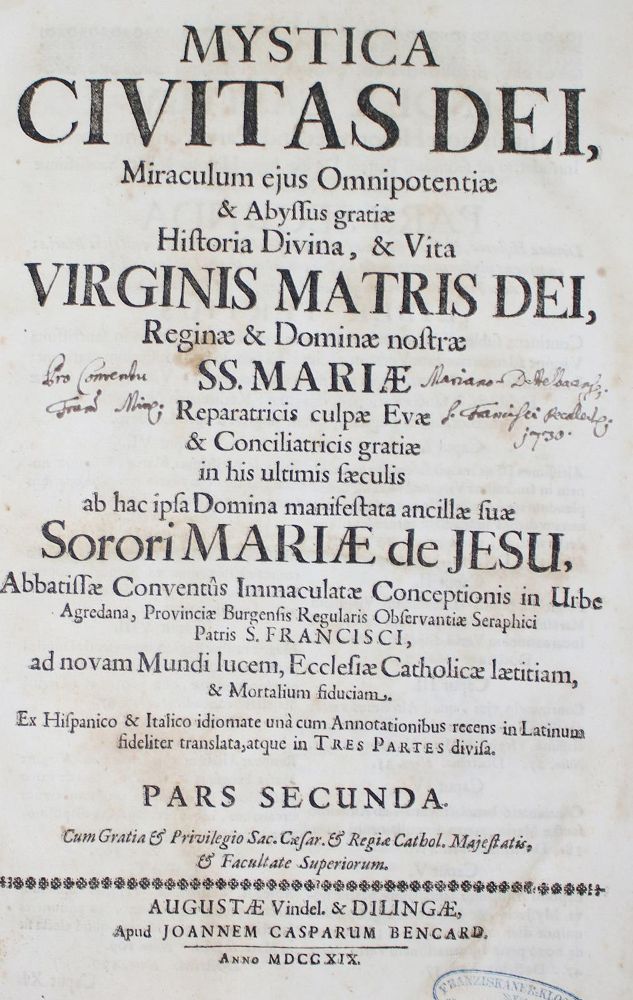 MYSTICA
CIVITAS DEI,
Miraculum ejus Omnipotentiæ
& Abyſſus gratiæ
Hiſtoria Divina, & Vita
VIRGINIS MATRIS DEI,
Reginæ & Dominæ noſtræ
SS. MARIÆ
Pro Conventu
Reparatricis culpæ Evæ
& Conciliatricis gratiæ
1730.
in his ultimis ſæculis
ab hac ipſa Domina manifeſtata ancillæ ſuæ
Sorori MARIÆ de JESU,
Abbatiſſæ Conventûs Immaculatæ Conceptionis in Urbe
Agredana, Provinciæ Burgenſis Regularis Obſervantiæ Seraphici
Patris S. FRANCISCI,
ad novam Mundi lucem, Eccleſiæ Catholicæ lætitiam,
& Mortalium fiduciam.
Ex Hiſpanico & Italico idiomate unà cum Annotationibus recens in Latinum
fideliter translata, atque in TRES PARTES diviſa.
PARS SECUNDA.
Cum Gratia & Privilegio Sac. Cæſar. & Regiæ Cathol. Majeſtatis,
& Facultate Superiorum.
AUGUSTÆ Vindel. & DILINGÆ,
Apud JOANNEM CASPARUM BENCARD.
ANNO MDCCXIX.
FRANZISKANER-KLO